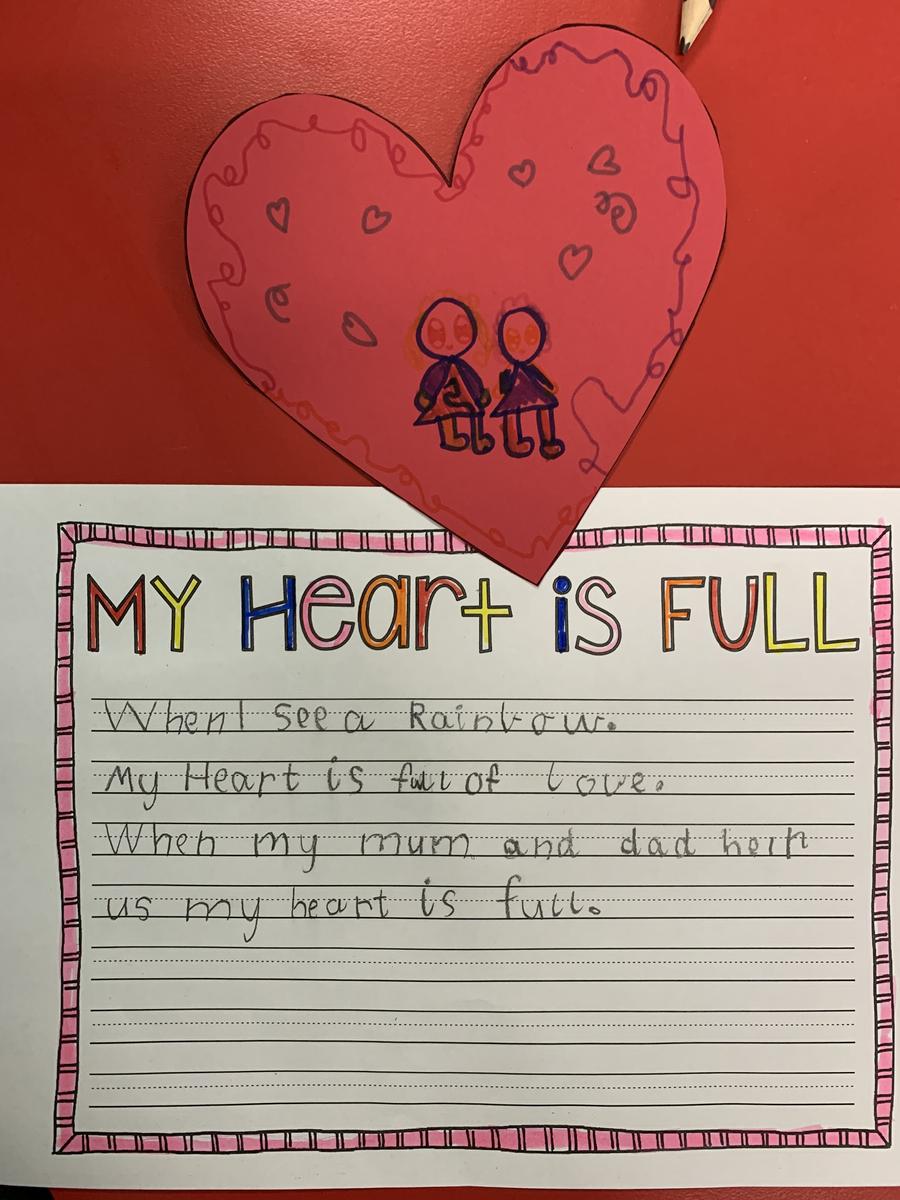 MY Heart is FULL
When I see a Rainbow.
My Heart is full of love.
When my mum and dad help
us my heart is full.